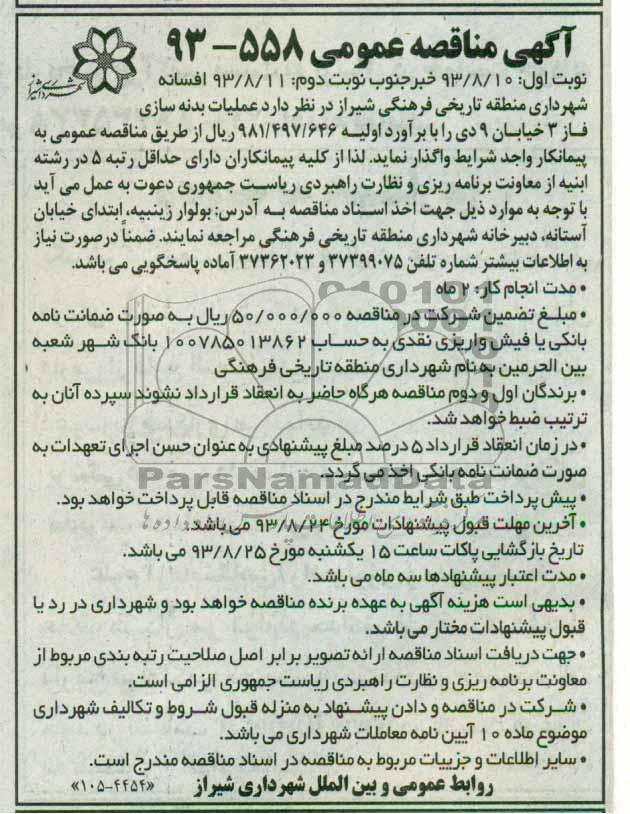 آگهی مناقصه عمومی ۵۵۸-۹۳
شهرداری شیراز
نوبت اول: ۹۳/۸/۱۰ خبرجنوب نوبت دوم: ۹۳/۸/۱۱ افسانه
شهرداری منطقه تاریخی فرهنگی شیراز در نظر دارد عملیات بدنه سازی
فاز ۳ خیابان ۹ دی را با برآورد اولیه ۹۸۱/۴۹۷/۶۴۶ ریال از طریق مناقصه عمومی به
پیمانکار واجد شرایط واگذار نماید. لذا از کلیه پیمانکاران دارای حداقل رتبه ۵ در رشته
ابنیه از معاونت برنامه ریزی و نظارت راهبردی ریاست جمهوری دعوت به عمل می آید
با توجه به موارد ذیل جهت اخذ اسناد مناقصه به آدرس: بولوار زینبیه، ابتدای خیابان
آستانه، دبیرخانه شهرداری منطقه تاریخی فرهنگی مراجعه نمایند. ضمناً درصورت نیاز
به اطلاعات بیشتر شماره تلفن ۳۷۳۹۹۰۷۵ و ۳۷۳۶۲۰۲۳ آماده پاسخگویی می باشد.
• مدت انجام کار: ۲ ماه
• مبلغ تضمین شرکت در مناقصه ۵۰/۰۰۰/۰۰۰ ریال به صورت ضمانت نامه
بانکی یا فیش واریزی نقدی به حساب ۱۰۰۷۸۵۰۱۳۸۶۲ بانک شهر شعبه
بین الحرمین به نام شهرداری منطقه تاریخی فرهنگی
• برندگان اول و دوم مناقصه هرگاه حاضر به انعقاد قرارداد نشوند سپرده آنان به
ترتیب ضبط خواهد شد.
• در زمان انعقاد قرارداد ۵ درصد مبلغ پیشنهادی به عنوان حسن اجرای تعهدات به
صورت ضمانت نامه بانکی اخذ می گردد.
ParsNamadData
• پیش پرداخت طبق شرایط مندرج در اسناد مناقصه قابل پرداخت خواهد بود.
• آخرین مهلت قبول پیشنهادات مورخ ۹۳/۸/۲۴ می باشد.
تاریخ بازگشایی پاکات ساعت ۱۵ یکشنبه مورخ ۹۳/۸/۲۵ می باشد.
• مدت اعتبار پیشنهادها سه ماه می باشد.
• بدیهی است هزینه آگهی به عهده برنده مناقصه خواهد بود و شهرداری در رد یا
قبول پیشنهادات مختار می باشد.
• جهت دریافت اسناد مناقصه ارائه تصویر برابر اصل صلاحیت رتبه بندی مربوط از
معاونت برنامه ریزی و نظارت راهبردی ریاست جمهوری الزامی است.
• شرکت در مناقصه و دادن پیشنهاد به منزله قبول شروط و تکالیف شهرداری
موضوع ماده ۱۰ آیین نامه معاملات شهرداری می باشد.
• سایر اطلاعات و جزییات مربوط به مناقصه در اسناد مناقصه مندرج است.
روابط عمومی و بین الملل شهرداری شیراز «۱۰۵-۴۴۵۴»